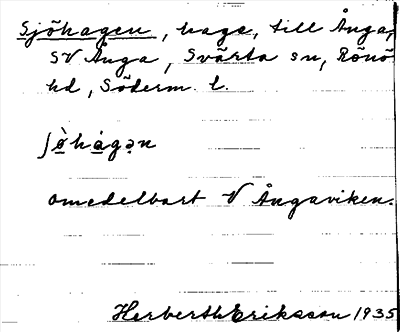 Sjöhagen, hage, till Ånga,
SV Ånga, Svärta sn, Rönö
hd, Söderm. l.
omedelbart V Ångaviken.
Herberth Eriksson 1935